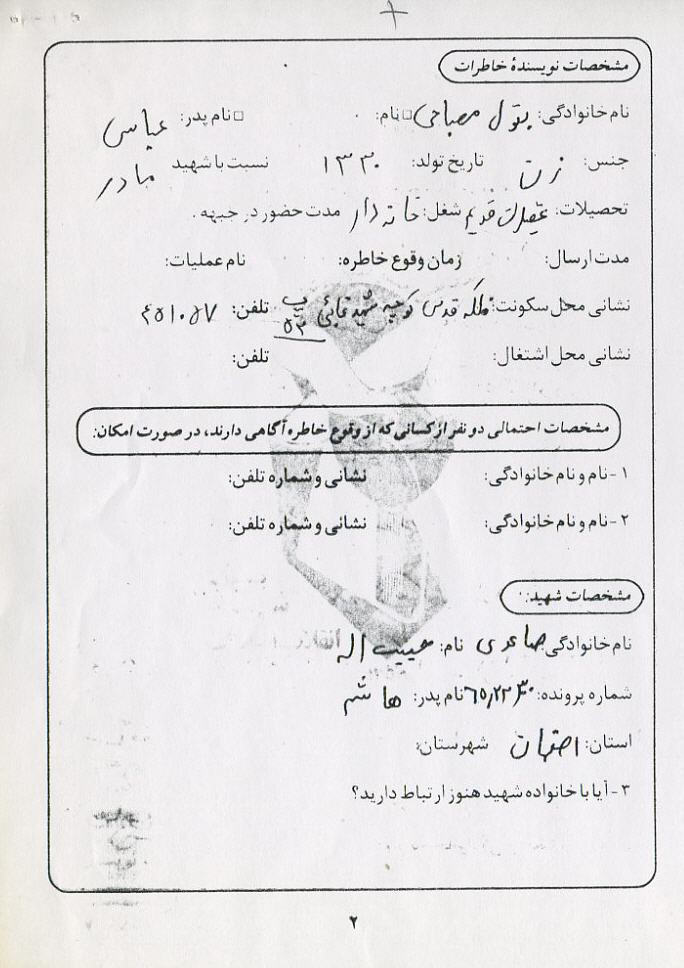 مشخصات نویسندهٔ خاطرات
نام خانوادگی: بتول مصباحی □ نام: □ نام پدر: عباس
جنس: زن تاریخ تولد: ۱۳۳۰ نسبت با شهید مادر
تحصیلات: قدیم شغل: خانه دار مدت حضور در جبهه.
مدت ارسال: زمان وقوع خاطره: نام عملیات:
نشانی محل سکونت: فلکه قدس کوچه شهید پ ۵۳ تلفن: ۴۵۱۰۵۷
نشانی محل اشتغال: تلفن:
مشخصات احتمالی دو نفر از کسانی که از وقوع خاطره آگاهی دارند، در صورت امکان:
۱- نام و نام خانوادگی: نشانی و شماره تلفن:
۲- نام و نام خانوادگی: نشانی و شماره تلفن:
مشخصات شهید:
نام خانوادگی صاعدی نام: حبیب اله
شماره پرونده: نام پدر: هاشم
استان: اصفهان شهرستان:
۳- آیا با خانواده شهید هنوز ارتباط دارید؟
۲